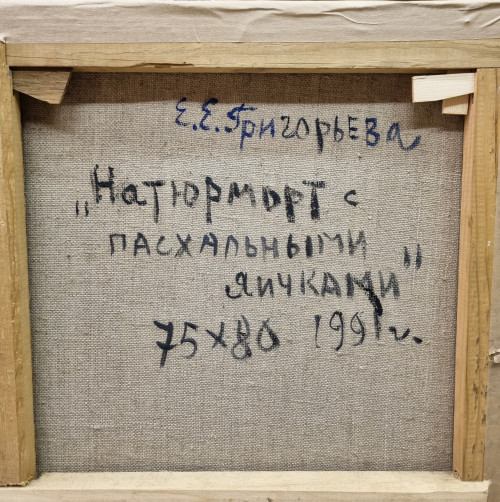 Е.Е.Григорьева
„Натюрморт с
пасхальными
яичками"
75x80 1991 г.